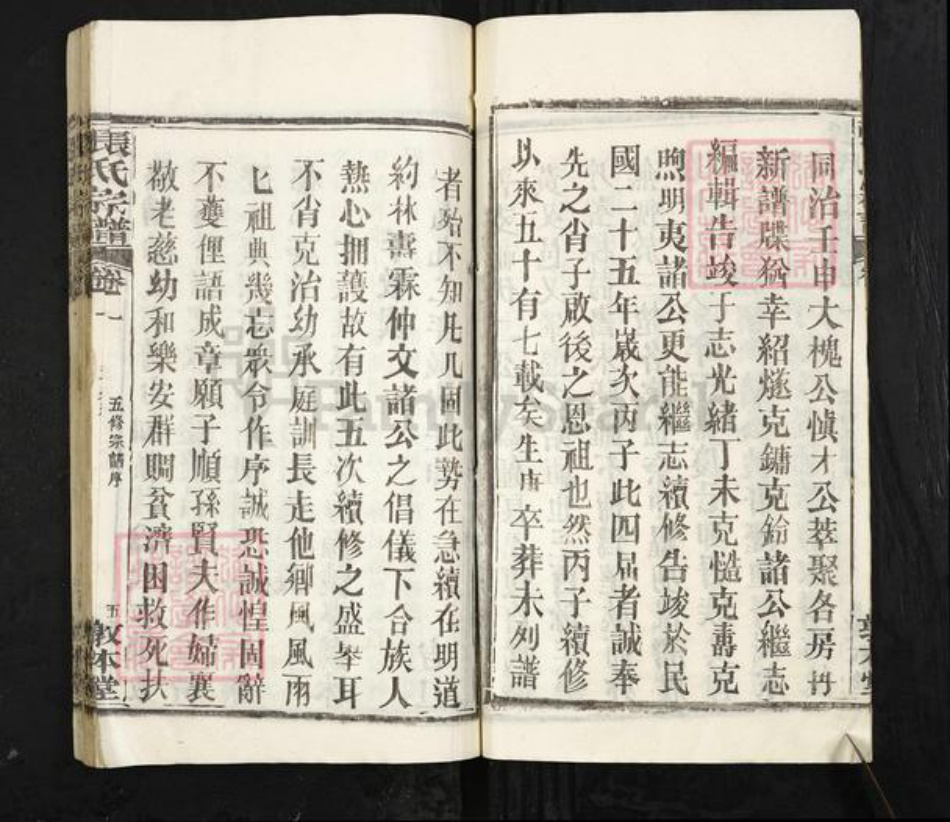 同治壬申大槐公慎才公萃聚各房丹
新譜牒猶幸紹燧克鏞克鈴諸公繼志
編輯告竣于志光緒丁未克慥克壽克
煦明夷諸公更能繼志續修告竣於民
國二十五年歲次丙子此四屆者誠奉
先之肖子啟後之恩祖也然丙子續修
以來五十有七載矣生庚卒葬未列譜
者殆不知凡几固此勢在急續在明道
約林壽霖仲文諸公之倡儀下合族人
熱心拥護故有此五次續修之盛举耳
不肖克治幼承庭訓長走他鄉風風雨
匕祖典幾忘眾令作序誠恐誠惶固辭
不獲俚語成章願子順孫賢夫作婦襄
敬老慈幼和樂安群賙貧濟困救死扶
張氏宗譜
卷一
五修宗譜序
五
敦本堂